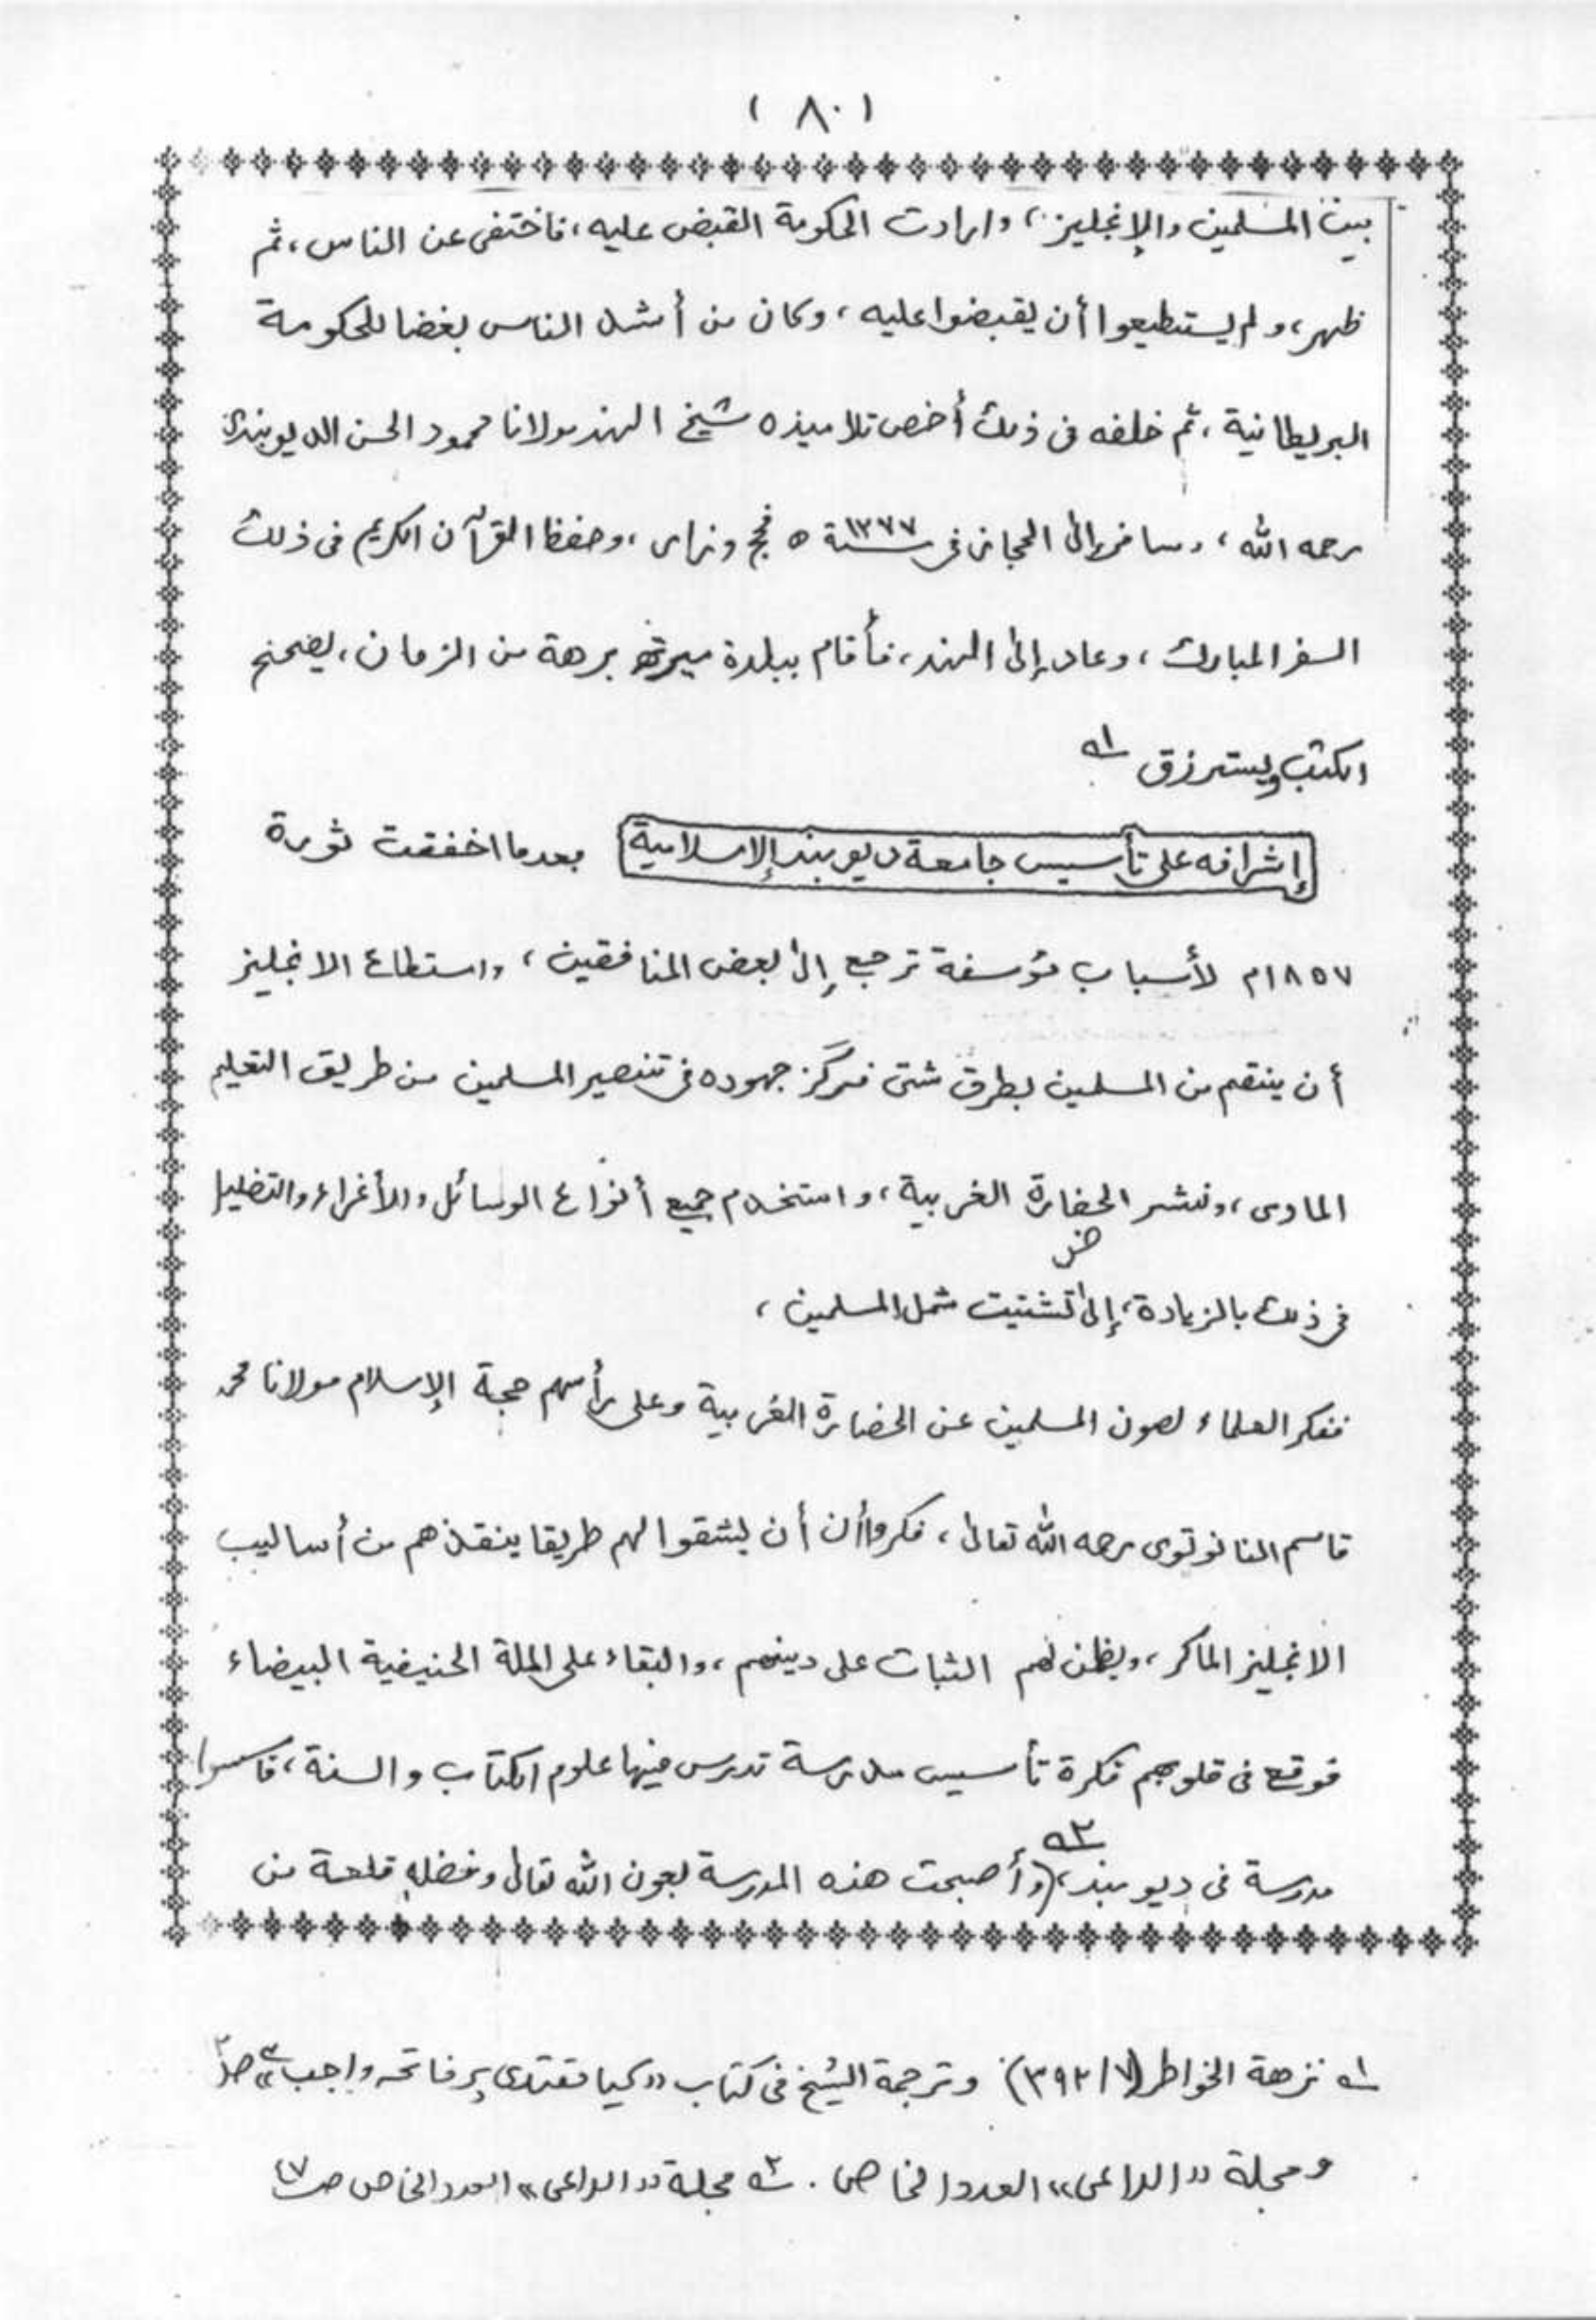 ( ٨٠ )
بين المسلمين والإنجليز، وارادت الحكومة القبض عليه، فاختفى عن الناس، ثم
ظهر، ولم يستطيعوا أن يقبضوا عليه، وكان من أشد الناس بغضا للحكومة
البريطانية، ثم خلفه في ذلك أخص تلاميذه شيخ الهند مولانا محمود الحسن الديوبندى
رحمه الله، وسافر إلى الحجاز في سنة ١٢٧٧ ه فحج وزار، وحفظ القرآن الكريم في ذلك
السفر المبارك، وعاد إلى الهند، فأقام ببلدة ميرته برهة من الزمان، يصحح
الكتب ويسترزق ١ه
إشرافه على تأسيس جامعة ديوبند الإسلامية بعدما اخفقت ثورة
١٨٥٧م لأسباب مؤسفة ترجع إلى بعض المنافقين، واستطاع الانجليز
أن ينتقم من المسلمين بطرق شتى فركز جهوده في تنصير المسلمين من طريق التعليم
المادى، ونشر الحضارة الغربية، واستخدم جميع أنواع الوسائل والأغراء والتضليل
ض
في ذلك بالزيادة، إلى تشتيت شمل المسلمين،
ففكر العلماء لصون المسلمين عن الحضارة الغربية وعلى رأسهم حجة الإسلام مولانا محمد
قاسم النانوتوى رحمه الله تعالى، فكروا أن يشقوا لهم طريقا ينقذهم من أساليب
الانجليز الماكر، لهم الثبات على دينهم، والبقاء على الملة الحنيفية البيضاء
فوقع في قلوبهم فكرة تأسيس مدرسة تدرس فيها علوم الكتاب والسنة، فاسسوا
مدرسة في ديوبند، ٢ه (وأصبحت هذه المدرسة بعون الله تعالى وفضله قلعة من
١ه نزهة الخواطر (٧/٣٩٢) وترجمة الشيخ في كتاب «كيا مقتدى پر فاتحہ واجب ہے» ص٢
ومجلة «الداعى» العدد الخاص. ٢ه مجلة «الداعى» العدد الخاص ص